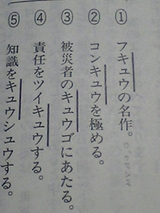 ① フキュウの名作。
② コンキュウを極める。
③ 被災者のキュウゴにあたる。
④ 責任をツイキュウする。
⑤ 知識をキュウシュウする。